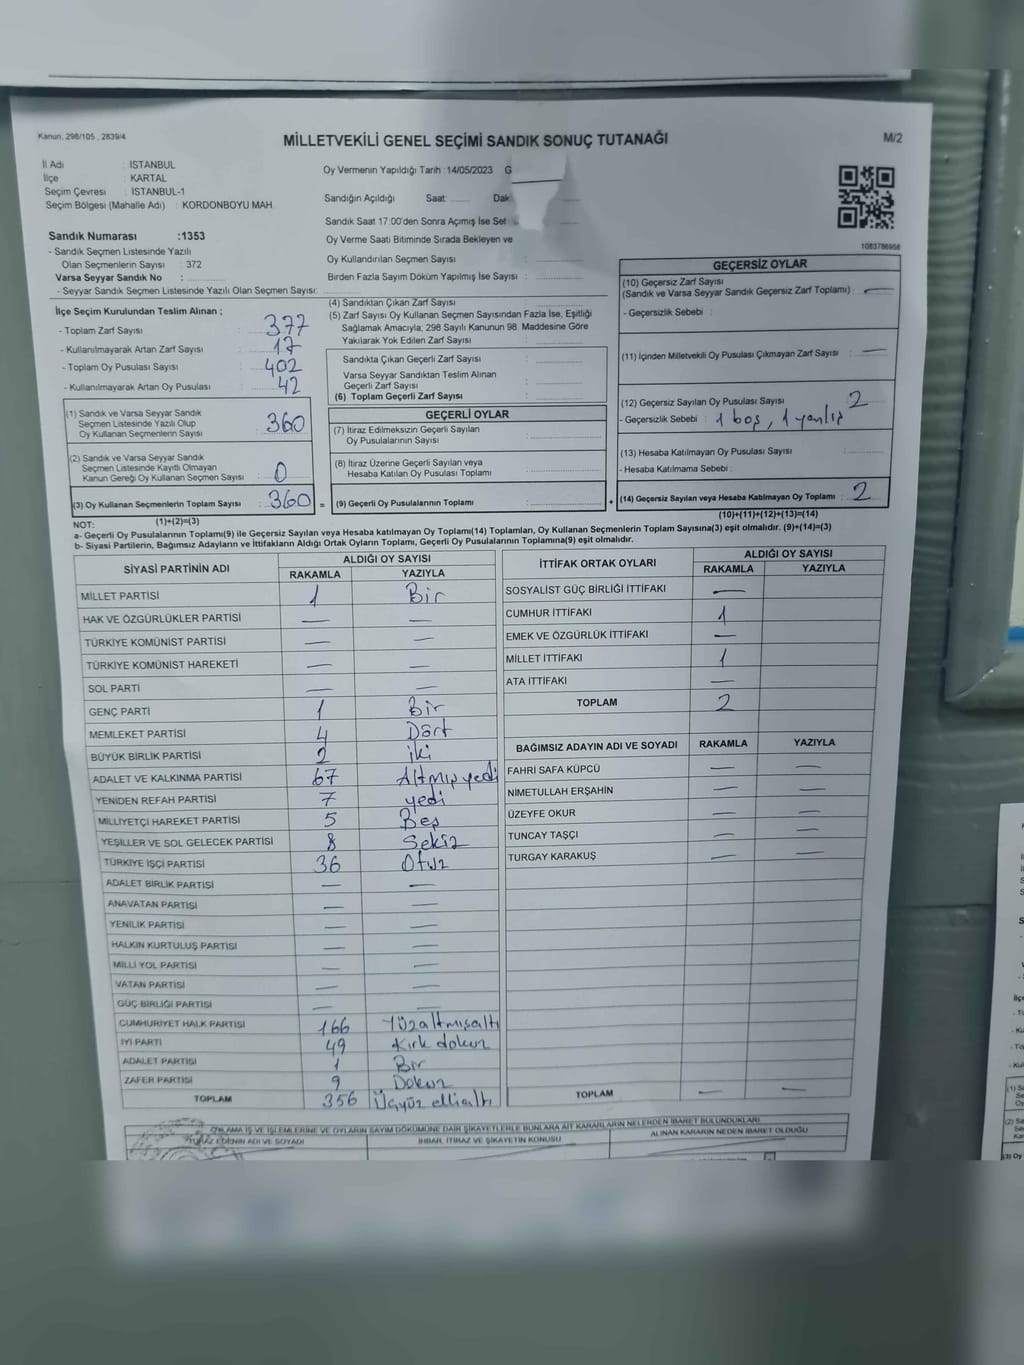 Kanun, 298/105 , 2839/4
MİLLETVEKİLİ GENEL SEÇİMİ SANDIK SONUÇ TUTANAĞI
M/2
İl Adı : İSTANBUL
İlçe : KARTAL
Seçim Çevresi : İSTANBUL-1
Seçim Bölgesi (Mahalle Adı) : KORDONBOYU MAH.
Oy Vermenin Yapıldığı Tarih :14/05/2023 G
Sandığın Açıldığı Saat: Dak
Sandık Saat 17:00'den Sonra Açımış İse Se
Oy Verme Saati Bitiminde Sırada Bekleyen ve
Oy Kullandırılan Seçmen Sayısı :
Birden Fazla Sayım Döküm Yapılmış İse Sayısı :
1083786958
Sandık Numarası :1353
- Sandık Seçmen Listesinde Yazılı
Olan Seçmenlerin Sayısı : 372
Varsa Seyyar Sandık No :
- Seyyar Sandık Seçmen Listesinde Yazılı Olan Seçmen Sayısı:
İlçe Seçim Kurulundan Teslim Alınan ;
- Toplam Zarf Sayısı : 377
- Kullanılmayarak Artan Zarf Sayısı : 17
- Toplam Oy Pusulası Sayısı : 402
- Kullanılmayarak Artan Oy Pusulası : 42
(1) Sandık ve Varsa Seyyar Sandık
Seçmen Listesinde Yazılı Olup
Oy Kullanan Seçmenlerin Sayısı : 360
(2) Sandık ve Varsa Seyyar Sandık
Seçmen Listesinde Kayıtlı Olmayan
Kanun Gereği Oy Kullanan Seçmen Sayısı : 0
(3) Oy Kullanan Seçmenlerin Toplam Sayısı : 360 =
(1)+(2)=(3)
(4) Sandıktan Çıkan Zarf Sayısı :
(5) Zarf Sayısı Oy Kullanan Seçmen Sayısından Fazla İse, Eşitliği
Sağlamak Amacıyla; 298 Sayılı Kanunun 98. Maddesine Göre
Yakılarak Yok Edilen Zarf Sayısı :
Sandıkta Çıkan Geçerli Zarf Sayısı :
Varsa Seyyar Sandıktan Teslim Alınan
Geçerli Zarf Sayısı :
(6) Toplam Geçerli Zarf Sayısı :
GEÇERLİ OYLAR
(7) İtiraz Edilmeksizin Geçerli Sayılan
Oy Pusulalarının Sayısı :
(8) İtiraz Üzerine Geçerli Sayılan veya
Hesaba Katılan Oy Pusulası Toplamı :
(9) Geçerli Oy Pusulalarının Toplamı : +
GEÇERSİZ OYLAR
(10) Geçersiz Zarf Sayısı
(Sandık ve Varsa Seyyar Sandık Geçersiz Zarf Toplamı) : —
- Geçersizlik Sebebi :
(11) İçinden Milletvekili Oy Pusulası Çıkmayan Zarf Sayısı : —
(12) Geçersiz Sayılan Oy Pusulası Sayısı : 2
- Geçersizlik Sebebi : 1 boş, 1 yanlış
(13) Hesaba Katılmayan Oy Pusulası Sayısı :
- Hesaba Katılmama Sebebi :
(14) Geçersiz Sayılan veya Hesaba Katılmayan Oy Toplamı : 2
(10)+(11)+(12)+(13)=(14)
NOT:
a- Geçerli Oy Pusulalarının Toplamı(9) ile Geçersiz Sayılan veya Hesaba katılmayan Oy Toplamı(14) Toplamları, Oy Kullanan Seçmenlerin Toplam Sayısına(3) eşit olmalıdır. (9)+(14)=(3)
b- Siyasi Partilerin, Bağımsız Adayların ve İttifakların Aldığı Ortak Oyların Toplamı, Geçerli Oy Pusulalarının Toplamına(9) eşit olmalıdır.
SİYASİ PARTİNİN ADI ALDIĞI OY SAYISI
RAKAMLA YAZIYLA
MİLLET PARTİSİ 1 Bir
HAK VE ÖZGÜRLÜKLER PARTİSİ — —
TÜRKİYE KOMÜNİST PARTİSİ — —
TÜRKİYE KOMÜNİST HAREKETİ — —
SOL PARTİ — —
GENÇ PARTİ 1 Bir
MEMLEKET PARTİSİ 4 Dört
BÜYÜK BİRLİK PARTİSİ 2 iki
ADALET VE KALKINMA PARTİSİ 67 Altmışyedi
YENİDEN REFAH PARTİSİ 7 yedi
MİLLİYETÇİ HAREKET PARTİSİ 5 Beş
YEŞİLLER VE SOL GELECEK PARTİSİ 8 Sekiz
TÜRKİYE İŞÇİ PARTİSİ 36 Otuz
ADALET BİRLİK PARTİSİ — —
ANAVATAN PARTİSİ — —
YENİLİK PARTİSİ — —
HALKIN KURTULUŞ PARTİSİ — —
MİLLİ YOL PARTİSİ — —
VATAN PARTİSİ — —
GÜÇ BİRLİĞİ PARTİSİ — —
CUMHURİYET HALK PARTİSİ 166 Yüzaltmışaltı
İYİ PARTİ 49 Kırk dokuz
ADALET PARTİSİ 1 Bir
ZAFER PARTİSİ 9 Dokuz
TOPLAM 356 Üçyüz ellialtı
İTTİFAK ORTAK OYLARI ALDIĞI OY SAYISI
RAKAMLA YAZIYLA
SOSYALİST GÜÇ BİRLİĞİ İTTİFAKI —
CUMHUR İTTİFAKI 1
EMEK VE ÖZGÜRLÜK İTTİFAKI —
MİLLET İTTİFAKI 1
ATA İTTİFAKI —
TOPLAM 2
BAĞIMSIZ ADAYIN ADI VE SOYADI RAKAMLA YAZIYLA
FAHRİ SAFA KÜPCÜ — —
NİMETULLAH ERŞAHİN — —
ÜZEYFE OKUR — —
TUNCAY TAŞÇI — —
TURGAY KARAKUŞ — —
TOPLAM — —
OYLAMA İŞ VE İŞLEMLERİNE VE OYLARIN SAYIM DÖKÜMÜNE DAİR ŞİKAYETLERLE BUNLARA AİT KARARLARIN NELERDEN İBARET BULUNDUKLARI
İTİRAZ EDENİN ADI VE SOYADI İHBAR, İTİRAZ VE ŞİKAYETİN KONUSU ALINAN KARARIN NEDEN İBARET OLDUĞU